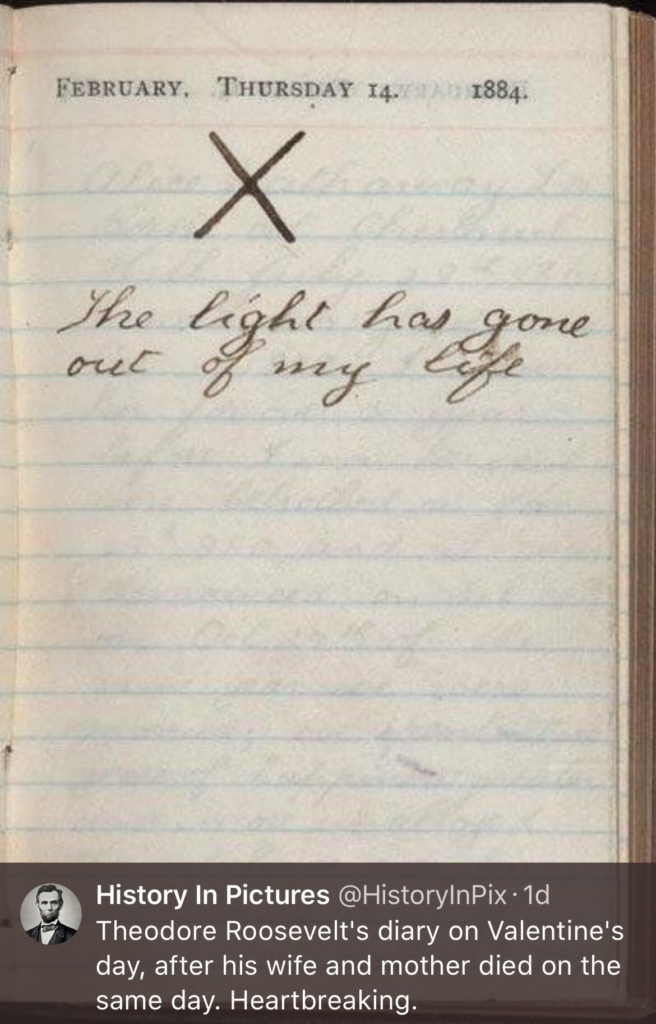 FEBRUARY. THURSDAY 14. 1884.
X
The light has gone
out of my life
History In Pictures @HistoryInPix · 1d
Theodore Roosevelt's diary on Valentine's
day, after his wife and mother died on the
same day. Heartbreaking.